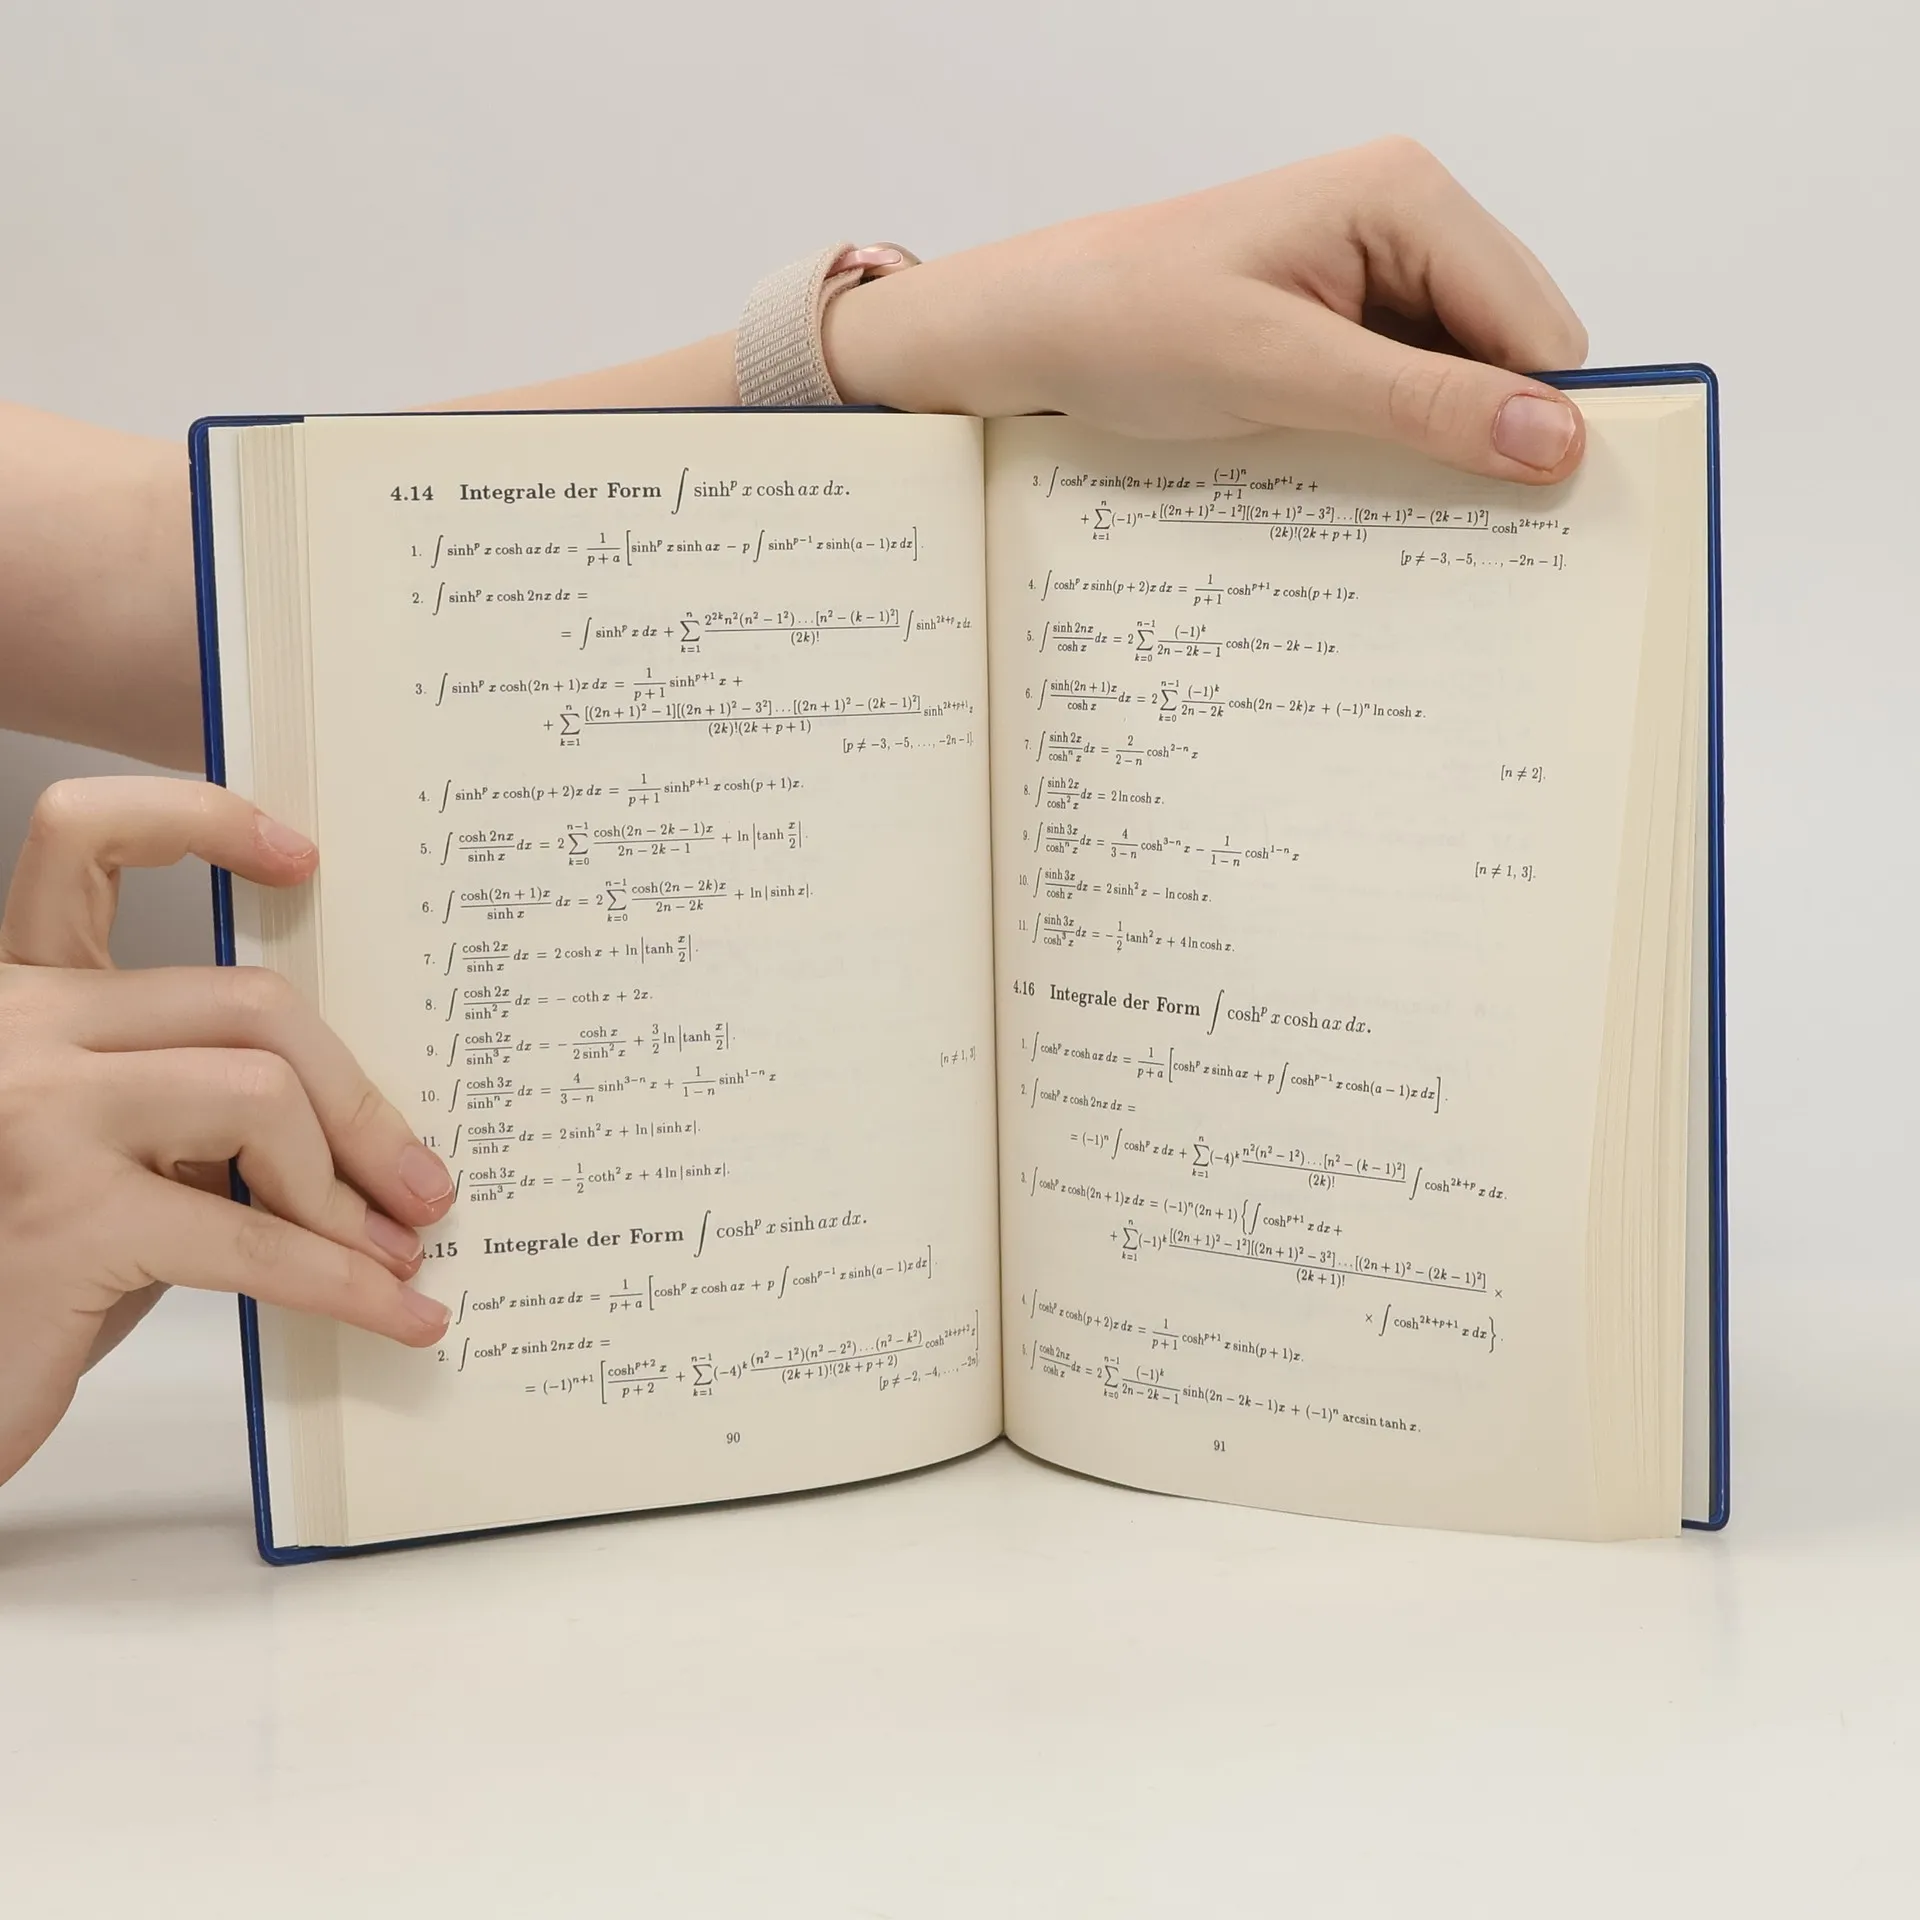 4.14 Integrale der Form ∫ sinh^p x cosh ax dx.
1. ∫ sinh^p x cosh ax dx = 1/(p + a) [sinh^p x sinh ax − p ∫ sinh^(p−1) x sinh(a − 1)x dx].
2. ∫ sinh^p x cosh 2nx dx =
= ∫ sinh^p x dx + ∑_{k=1}^{n} 2^(2k) n²(n² − 1²)…[n² − (k − 1)²]/(2k)! ∫ sinh^(2k+p) x dx.
3. ∫ sinh^p x cosh(2n + 1)x dx = 1/(p + 1) sinh^(p+1) x +
+ ∑_{k=1}^{n} [(2n + 1)² − 1][(2n + 1)² − 3²]…[(2n + 1)² − (2k − 1)²]/((2k)!(2k + p + 1)) sinh^(2k+p+1) x
[p ≠ −3, −5, …, −2n − 1].
4. ∫ sinh^p x cosh(p + 2)x dx = 1/(p + 1) sinh^(p+1) x cosh(p + 1)x.
5. ∫ cosh 2nx/sinh x dx = 2 ∑_{k=0}^{n−1} cosh(2n − 2k − 1)x/(2n − 2k − 1) + ln |tanh x/2|.
6. ∫ cosh(2n + 1)x/sinh x dx = 2 ∑_{k=0}^{n−1} cosh(2n − 2k)x/(2n − 2k) + ln | sinh x|.
7. ∫ cosh 2x/sinh x dx = 2 cosh x + ln |tanh x/2|.
8. ∫ cosh 2x/sinh² x dx = − coth x + 2x.
9. ∫ cosh 2x/sinh³ x dx = − cosh x/(2 sinh² x) + 3/2 ln |tanh x/2|.
10. ∫ cosh 3x/sinh^n x dx = 4/(3 − n) sinh^(3−n) x + 1/(1 − n) sinh^(1−n) x [n ≠ 1, 3]
11. ∫ cosh 3x/sinh x dx = 2 sinh² x + ln | sinh x|.
∫ cosh 3x/sinh³ x dx = − 1/2 coth² x + 4 ln | sinh x|.
4.15 Integrale der Form ∫ cosh^p x sinh ax dx.
∫ cosh^p x sinh ax dx = 1/(p + a) [cosh^p x cosh ax + p ∫ cosh^(p−1) x sinh(a − 1)x dx].
2. ∫ cosh^p x sinh 2nx dx =
= (−1)^(n+1) [cosh^(p+2) x/(p + 2) + ∑_{k=1}^{n−1} (−4)^k (n² − 1²)(n² − 2²)…(n² − k²)/((2k + 1)!(2k + p + 2)) cosh^(2k+p+2) x]
[p ≠ −2, −4, …, −2n]
90
3. ∫ cosh^p x sinh(2n + 1)x dx = (−1)^n/(p + 1) cosh^(p+1) x +
+ ∑_{k=1}^{n} (−1)^(n−k) [(2n + 1)² − 1²][(2n + 1)² − 3²]…[(2n + 1)² − (2k − 1)²]/((2k)!(2k + p + 1)) cosh^(2k+p+1) x
[p ≠ −3, −5, …, −2n − 1].
4. ∫ cosh^p x sinh(p + 2)x dx = 1/(p + 1) cosh^(p+1) x cosh(p + 1)x.
5. ∫ sinh 2nx/cosh x dx = 2 ∑_{k=0}^{n−1} (−1)^k/(2n − 2k − 1) cosh(2n − 2k − 1)x.
6. ∫ sinh(2n + 1)x/cosh x dx = 2 ∑_{k=0}^{n−1} (−1)^k/(2n − 2k) cosh(2n − 2k)x + (−1)^n ln cosh x.
7. ∫ sinh 2x/cosh^n x dx = 2/(2 − n) cosh^(2−n) x [n ≠ 2].
8. ∫ sinh 2x/cosh² x dx = 2 ln cosh x.
9. ∫ sinh 3x/cosh^n x dx = 4/(3 − n) cosh^(3−n) x − 1/(1 − n) cosh^(1−n) x [n ≠ 1, 3].
10. ∫ sinh 3x/cosh x dx = 2 sinh² x − ln cosh x.
11. ∫ sinh 3x/cosh³ x dx = − 1/2 tanh² x + 4 ln cosh x.
4.16 Integrale der Form ∫ cosh^p x cosh ax dx.
1. ∫ cosh^p x cosh ax dx = 1/(p + a) [cosh^p x sinh ax + p ∫ cosh^(p−1) x cosh(a − 1)x dx].
2. ∫ cosh^p x cosh 2nx dx =
= (−1)^n ∫ cosh^p x dx + ∑_{k=1}^{n} (−4)^k n²(n² − 1²)…[n² − (k − 1)²]/(2k)! ∫ cosh^(2k+p) x dx.
3. ∫ cosh^p x cosh(2n + 1)x dx = (−1)^n (2n + 1) {∫ cosh^(p+1) x dx +
+ ∑_{k=1}^{n} (−1)^k [(2n + 1)² − 1²][(2n + 1)² − 3²]…[(2n + 1)² − (2k − 1)²]/(2k + 1)! ×
× ∫ cosh^(2k+p+1) x dx}.
4. ∫ cosh^p x cosh(p + 2)x dx = 1/(p + 1) cosh^(p+1) x sinh(p + 1)x.
5. ∫ cosh 2nx/cosh x dx = 2 ∑_{k=0}^{n−1} (−1)^k/(2n − 2k − 1) sinh(2n − 2k − 1)x + (−1)^n arcsin tanh x.
91